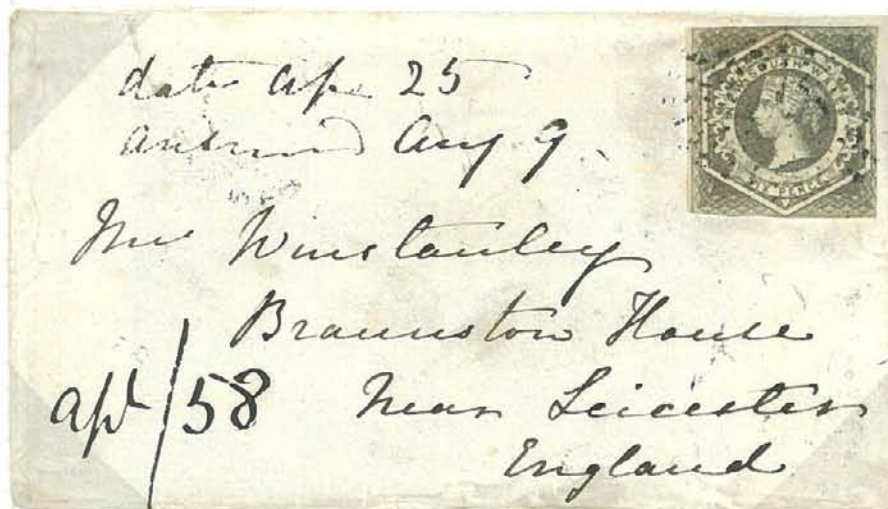 date Ap 25
answered Aug 9
Mrs Winstanley
Braunston House
apl/58 Near Leicester
England
SOUTH WALES
SIX PENCE